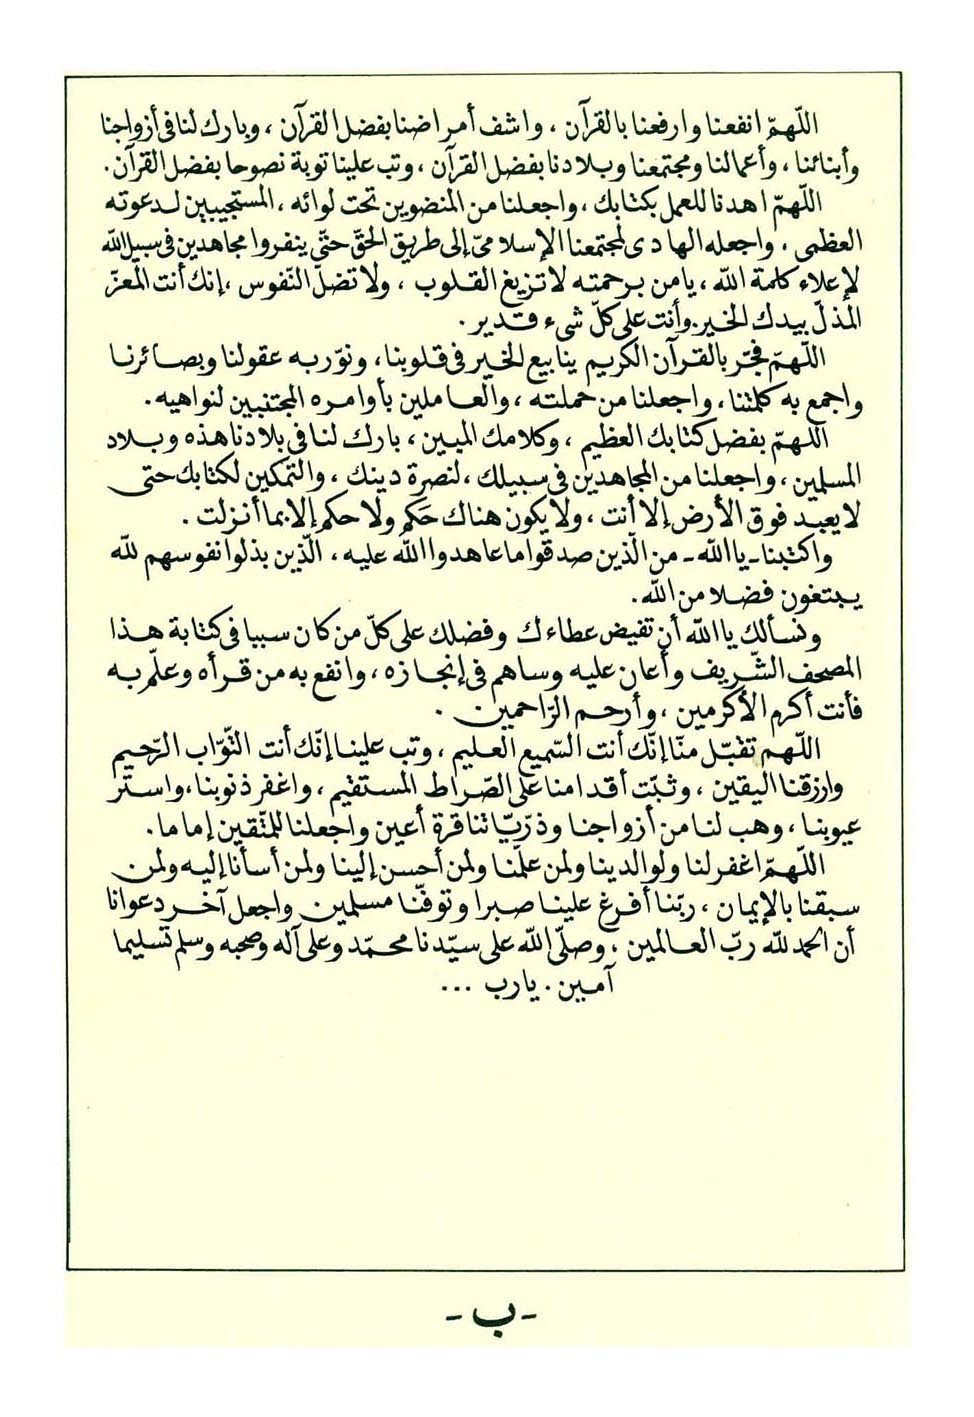 اللّهمّ انفعنا وارفعنا بالقرآن ، واشف أمراضنا بفضل القرآن ، وبارك لنا فى أزواجنا
وأبنائنا ، وأعمالنا ومجتمعنا وبلادنا بفضل القرآن ، وتب علينا توبة نصوحا بفضل القرآن .
اللهمّ اهدنا للعمل بكتابك ، واجعلنا من المنضوين تحت لوائه ، المستجيبين لدعوته
العظمى ، واجعله الهادى لمجتمعنا الإسلامىّ إلى طريق الحقّ حتّى ينفروا مجاهدين فى سبيل الله
لإعلاء كلمة الله ، يا من برحمته لا تزيغ القلوب ، ولا تضلّ النّفوس ، إنك أنت المعزّ
المذلّ بيدك الخير. وأنت على كلّ شىء قدير .
اللهمّ فجّر بالقرآن الكريم ينابيع الخير فى قلوبنا ، ونوّر به عقولنا وبصائرنا
واجمع به كلمتنا ، واجعلنا من حملته ، والعاملين بأوامره المجتنبين لنواهيه .
اللهمّ بفضل كتابك العظيم ، وكلامك المبين ، بارك لنا فى بلادنا هذه وبلاد
المسلمين ، واجعلنا من المجاهدين فى سبيلك ، لنصرة دينك ، والتمكين لكتابك حتى
لا يعبد فوق الأرض إلا أنت ، ولا يكون هناك حَكَم ولا حكم إلا بما أنزلت .
واكتبنا ـ يا الله ـ من الّذين صدقوا ما عاهدوا الله عليه ، الّذين بذلوا نفوسهم لله
يبتغون فضلا من الله .
ونسألك يا الله أن تفيض عطاءك وفضلك على كلّ من كان سببا فى كتابة هذا
المصحف الشّريف وأعان عليه وساهم فى إنجازه ، وانفع به من قرأه وعلّم به
فأنت أكرم الأكرمين ، وأرحم الرّاحمين .
اللهم تقبّل منّا إنّك أنت السّميع العليم ، وتب علينا إنّك أنت التّوّاب الرّحيم
وارزقنا اليقين ، وثبّت أقدامنا على الصّراط المستقيم ، واغفر ذنوبنا ، واستر
عيوبنا ، وهب لنا من أزواجنا وذرّيّاتنا قرة أعين واجعلنا للمتّقين إماما .
اللّهمّ اغفر لنا ولوالدينا ولمن علّمنا ولمن أحسن إلينا ولمن أسأنا إليه ولمن
سبقنا بالإيمان ، ربّنا أفرغ علينا صبرا وتوفّنا مسلمين واجعل آخر دعوانا
أن الحمد لله ربّ العالمين ، وصلّى الله على سيّدنا محمّد وعلى آله وصحبه وسلم تسليما
آمين . يا رب ...
- ب -